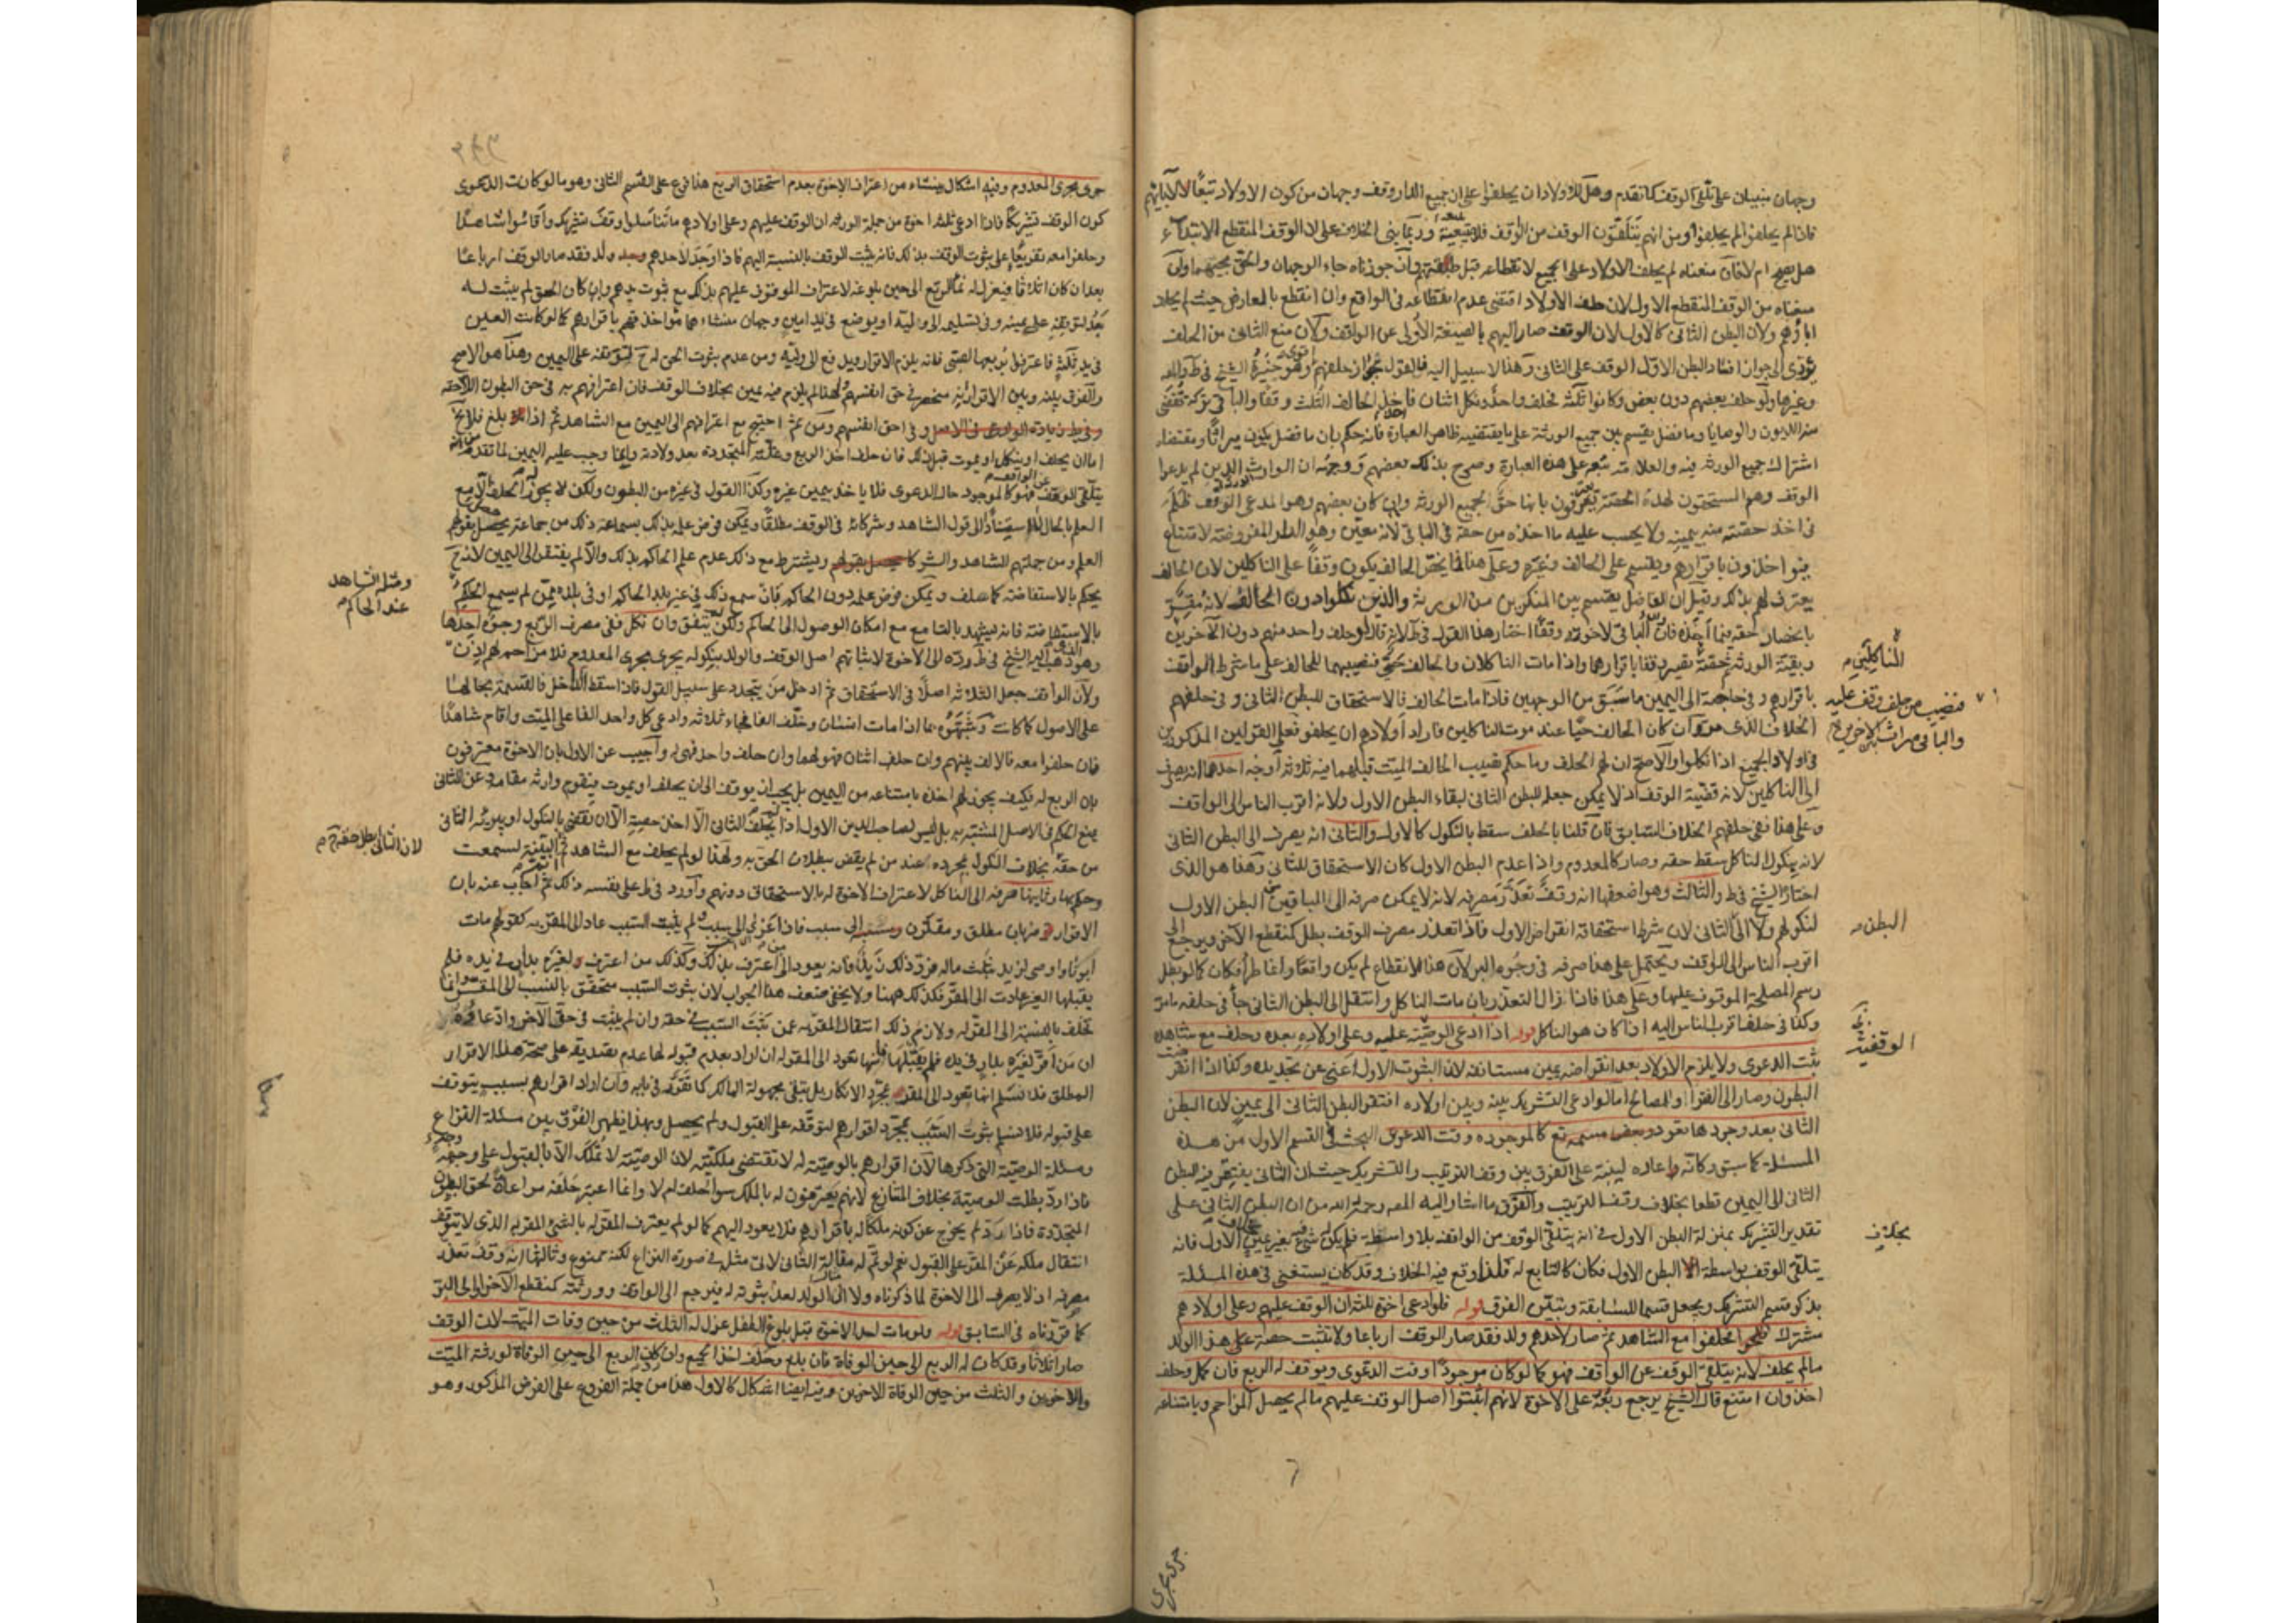 وجهان مبنيان على تلقي الوقف كما تقدم وهل للاولاد ان يحلفوا على ان جميع الدار وقف وجهان من كون الاولاد تبعا لآبائهم
فاذا لم يحلفوا لم يحلفوا ومن انهم يتلقون الوقف من الواقف فلا تبعية وربما بنى الخلاف على ان الوقف المنقطع الابتداء
هل يصح ام لا فان منعناه لم يحلف الاولاد على الجميع لانقطاعه قبل وان جوزناه جاء الوجهان والحق مجيئهما وان
منعناه من الوقف المنقطع الاول لان حلف الاولاد اقتضى عدم انقطاعه في الواقع وان انقطع بالمعارض حيث لم يحلف
اباؤهم ولان البطن الثاني كالاول لان الوقف صار اليهم بالصيغة الاولى عن الواقف ولان منع الثاني من الحلف
يؤدي الى جواز افساد البطن الاول الوقف على الثاني وهذا لا سبيل اليه فالقول بجواز حلفهم اقوى وهو خيرة الشيخ في ط والمص
وغيرهما ولو حلف بعضهم دون بعض وكانوا ثلثة فحلف واحد ونكل اثنان فاخذ الحالف الثلث وقفا والباقي تركة تقضى
منه الديون والوصايا وما فضل يقسم بين جميع الورثة على ما يقتضيه ظاهر العبارة فانه حكم بان ما فضل يكون ميراثا ومقتضاه
اشتراك جميع الورثة فيه والعلامة تبعه على هذه العبارة وصرح بذلك بعضهم ووجهه ان الوارث الذين لم يدعوا
الوقف وهم المستحقون لهذه الحصة يعترفون بانها حق لجميع الورثة وان كان بعضهم وهو المدعي الوقف ظلم
في اخذ حصته منه بيمينه ولا يحسب عليه ما اخذه من حقه في الباقي لانه معين وهو الدار المفروضة لامتناع
فيؤاخذون باقرارهم ويقسم على الحالف وغيره وعلى هذا فما يخص الحالف يكون وقفا على الناكلين لان الحالف
يعترف لهم بذلك وقيل ان الفاضل يقتسم بين المنكرين من الورثة والذين نكلوا دون الحالف لانه مقر
بانحصار حقه فيما اخذه فان الباقي لاخوته وقفا اختار هذا القول في ط لانه قال لو حلف واحد منهم دون الآخرين
الناكلين
فنصيب من حلف وقف عليه
والباقي ميراث للاخرين
وبقية الورثة فحصة تصير وقفا باقرارهما واذا مات الناكلان والحالف حي فنصيبهما للحالف على ما شرط الواقف
باقرارهم وفي حاجته الى اليمين ما سبق من الوجهين فاذا مات الحالف فالاستحقاق للبطن الثاني وفي حلفهم
الخلاف الذي مر وان كان الحالف حيا عند موت الناكلين فاراد اولادهم ان يحلفوا فعلى القولين المذكورين
في اولاد الجميع اذا نكلوا والاصح ان لهم الحلف وما حكم نصيب الحالف الميت قبلهما فيه ثلاثة اوجه احدها انه يصرف
الى الناكلين لانه قضية الوقف اذ لا يمكن جعله للبطن الثاني لبقاء البطن الاول ولانه اقرب الناس الى الواقف
وعلى هذا ففي حلفهم الخلاف السابق فان قلنا بالحلف سقط بالنكول كالاول والثاني انه يصرف الى البطن الثاني
لانه بنكول الناكل سقط حقه وصار كالمعدوم واذا عدم البطن الاول كان الاستحقاق للثاني وهذا هو الذي
اختاره الشيخ في ط والثالث وهو اضعفها انه وقف تعذر مصرفه لانه لا يمكن صرفه الى الباقين من البطن الاول
البطن
لنكولهم ولا الى الثاني لان شرط استحقاقه انقراض الاول فاذا تعذر مصرف الوقف بطل كمنقطع الآخر ويرجع الى
اقرب الناس الى الواقف ويحتمل على هذا صرفه في وجوه البر لان هذا الانقطاع لم يكن واقعا وانما طرأ فكان كما لو بطل
رسم المصلحة الموقوف عليها وعلى هذا فاذا زال التعذر بان مات الناكل وانتقل الى البطن الثاني جاء في حلفه ما مر
الوقفية
وكذا في حلف اقرب الناس اليه اذا كان هو الناكل قوله اذا ادعى الوقفية عليه وعلى اولاده بعده وحلف مع شاهده
ثبت الدعوى ولا يلزم الاولاد بعد انقراضه يمين مستانفة لان الثبوت الاول اغنى عن تجديده وكذا اذا انقرضت
البطون وصار الى الفقراء والمصالح اما لو ادعى التشريك بينه وبين اولاده افتقر البطن الثاني الى يمين لان البطن
الثاني بعد وجودها تعود كالموجودة وقت الدعوى البحث في القسم الاول من هذه
المسئلة كما سبق وكانه اعاده لينبه على الفرق بين وقف الترتيب والتشريك حيث ان الثاني يفتقر فيه البطن
الثاني الى اليمين قطعا بخلاف وقف الترتيب والفرق ما اشار اليه المص رحمه الله من ان البطن الثاني على
بخلاف
تقدير التشريك بمنزلة البطن الاول في انه يتلقى الوقف من الواقف بلا واسطة فلم يكن له شيء بغير يمين الاول فانه
يتلقى الوقف بواسطة البطن الاول فكان كالتابع له فلذا وقع فيه الخلاف وقد كان يستغنى في هذه المسئلة
بذكر قسم التشريك ويجعل قسيما للسابقة ويتبين الفرق قوله فلو ادعى اخوة ثلثة ان الوقف عليهم وعلى اولادهم
مشترك فحلفوا مع الشاهد ثم صار لاحدهم ولد فقد صار الوقف ارباعا ولا تثبت حصة على هذا الولد
ما لم يحلف لانه يتلقى الوقف عن الواقف فهو كما لو كان موجودا وقت الدعوى ويوقف له الربع فان كمل وحلف
اخذ وان امتنع قال الشيخ يرجع ربعه على الاخوة لانهم اثبتوا اصل الوقف عليهم ما لم يحصل المزاحم وبامتناعه
جرى مجرى
جرى مجرى المعدوم وفيه اشكال ينشاء من اعتراف الاخوة بعدم استحقاق الربع هذا فرع على القسم الثاني وهو ما لو كانت الدعوى
كون الوقف تشريكا فاذا ادعى ثلثة اخوة من جملة الورثة ان الوقف عليهم وعلى اولادهم ما تناسلوا وقف تشريك واقاموا شاهدا
وحلفوا معه تفريعا على ثبوت الوقف بذلك فانه يثبت الوقف بالنسبة اليهم فاذا وجد لاحدهم ولد فقد صار الوقف ارباعا
بعد ان كان اثلاثا فيعزل له الربع الى حين بلوغه لاعتراف الموقوف عليهم بذلك مع ثبوت يدهم وان كان الحق لم يثبت له
بعد لتوقفه على يمينه وفي تسليمه الى وليه او يوضع في يد امين وجهان منشاءهما مؤاخذتهم باقرارهم كما لو كانت العين
في يد ثلثة فاعترفوا بربعها لصبي فانه يلزم الاقرار ويدفع الى وليه ومن عدم ثبوت الحق له لتوقفه على اليمين وهذا هو الاصح
والفرق بينه وبين الاقرار انه منحصر في حق انفسهم ولهذا لم يلزم فيه يمين بخلاف الوقف فان اعترافهم به في حق البطون اللاحقة
وفي حق انفسهم ومن ثم احتيج مع اعترافهم الى اليمين مع الشاهد ثم اذا بلغ فلا يخ
اما ان يحلف او ينكل او يموت قبل ذلك فان حلف اخذ الربع وغلته المتجددة بعد ولادته وانما وجب عليه اليمين لما تقدم من انه
يتلقى الوقف من الواقف فهو كالموجود حال الدعوى فلا ياخذ بيمين غيره وكذا القول في غيره من البطون ولكن لا يجوز له الحلف الا مع
العلم بالحال لا استنادا الى قول الشاهد وشركائه في الوقف مطلقا ويمكن فرض علمه بذلك بسماعه ذلك من جماعة يحصل بقولهم
العلم ومن جملتهم الشاهد والشركاء ويشترط مع ذلك عدم علم الحاكم بذلك والا لم يفتقر الى اليمين لانه ح
ومثله الشاهد
عند الحاكم
يحكم بالاستفاضة كما سلف ويمكن فرض علمه دون الحاكم فان سمع ذلك في غير بلد الحاكم او في بلده ممن لم يسمع الحاكم
بالاستفاضة فانه يشهد بالتسامع مع امكان الوصول الى الحاكم ولكن لم يتفق وان نكل ففي مصرف الربع وجوه احدها
وهو الذي ذهب اليه الشيخ في ط رده الى الاخوة لاثباتهم اصل الوقف والولد بنكوله يجري مجرى المعدوم فلا مزاحم لهم اذن
ولان الواقف جعل الثلاثة اصلا في الاستحقاق ثم ادخل من يتجدد على سبيل العول فاذا اسقط الداخل فالقسمة بحالها
على الاصول كما كانت وشبهوه بما اذا مات انسان وخلف الفا فجاء ثلاثة وادعى كل واحد الفا على الميت واقام شاهدا
فان حلفوا معه فالالف بينهم وان حلف اثنان فهو لهما وان حلف واحد فهو له واجيب عن الاول بان الاخوة معترفون
بان الربع له فكيف يجوز لهم اخذه بامتناعه من اليمين بل يجب ان يوقف الى ان يحلف او يموت فيقوم وارثه مقامه وعن الثاني
لان الثاني ابطل حقه
بمنع الحكم في الاصل المشتبه به بل ليس لصاحب الدين الاول اذا لم يحلف الثاني الا اخذ حصته الا ان نقضي بالنكول او يبرئه الثاني
من حقه بخلاف النكول بمجرده عند من لم يقض ببطلان الحق به ولهذا لو لم يحلف مع الشاهد ثم اقام البينة لسمعت
وحكم بها وثانيها صرفه الى الناكل لاعتراف الاخوة له بالاستحقاق دونهم واورد في ط على نفسه ذلك ثم اجاب عنه بان
الاقرار ضربان مطلق ومعزو الى سبب فاذا عزي الى سبب ولم يثبت السبب عاد الى المقر به كقولهم مات
ابونا واوصى لزيد بثلث ماله فرد ذلك زيد فانه يعود الى من اعترف بذلك وكذلك من اعترف لغيره بدار في يده فلم
يقبلها الغير عادت الى المقر فكذلك ههنا ولا يخفى ضعف هذا الجواب لان ثبوت السبب متحقق بالنسبة الى المقر وانما
تخلف بالنسبة الى المقر له ولازم ذلك انتقال المقر به عمن ثبت السبب في حقه وان لم يثبت في حق الآخر وادعاؤه
ان من اقر لغيره بدار في يده فلم يقبلها فانها تعود الى المقر له ان اراد بعدم قبوله لها عدم تصديقه على صحة هذا الاقرار
المطلق فلا نسلم انها تعود الى المقر بمجرد الانكار بل تبقى مجهولة المالك كما تقرر في بابه وان اراد اقرارهم بسبب يتوقف
على قبوله فلا نسلم ثبوت السبب بمجرد اقرارهم لتوقفه على القبول ولم يحصل وبهذا يظهر الفرق بين مسئلة النزاع
ومسئلة الوصية التي ذكروها لان اقرارهم بالوصية له لا تقتضي ملكيته لان الوصية لا تملك الا بالقبول على وجهه
فاذا رد بطلت الوصية بخلاف المتنازع لانهم يعترفون له بالملك سواء حلف ام لا وانما اعتبر حلفه مراعاة لحق البطون
المتجددة فاذا رد لم يخرج عن كونه ملكا له باقرارهم فلا يعود اليهم كما لو لم يعترف المقر له بالشيء المقر به الذي لا يتوقف
انتقال ملكه عن المقر على القبول نعم لو تم له مقالة الثاني لاتى مثله في صورة النزاع لكنه ممنوع وثالثها انه وقف تعذر
مصرفه اذ لا يصرف الى الاخوة لما ذكرناه ولا الى الولد لعدم ثبوته له فيرجع الى الواقف وورثته كمنقطع الآخر او الى البر
كما قررناه في السابق قوله ولو مات احد الاخوة قبل بلوغ الطفل عزل له الثلث من حين وفات الميت لان الوقف
صار اثلاثا وقد كان له الربع الى حين الوفاة فان بلغ وحلف اخذ الجميع وان نكل كان الربع الى حين الوفاة لورثة الميت
والاخوين والثلث من حين الوفاة للاخوين وفيه ايضا اشكال كالاول هذا من جملة الفروع على الفرض المذكور وهو